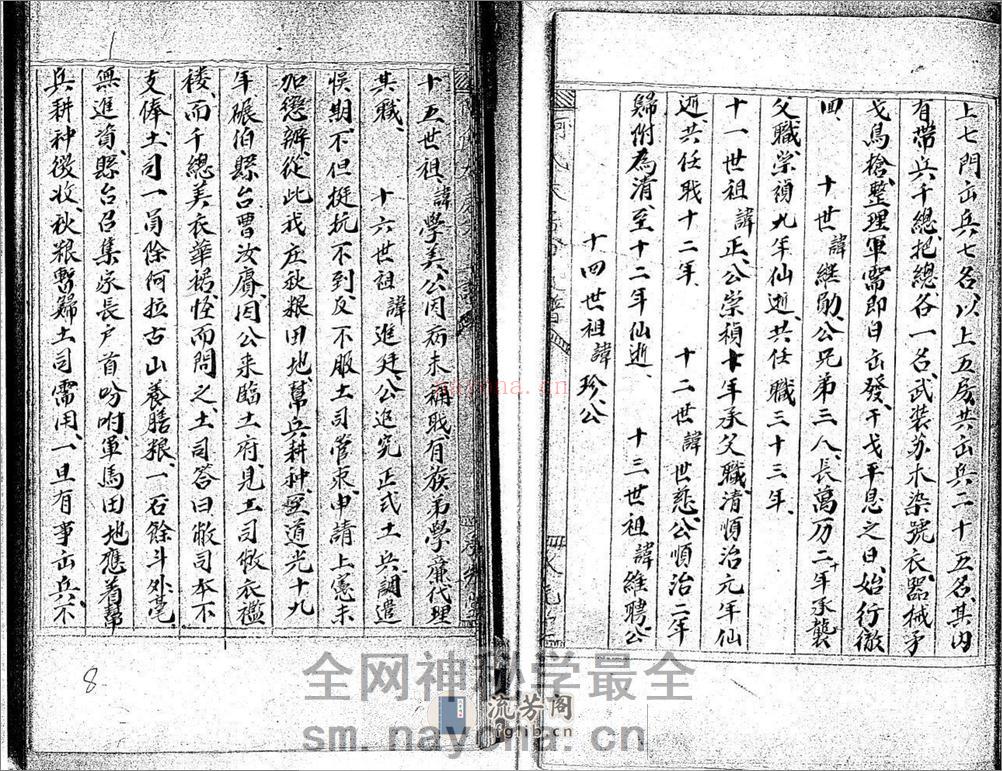 上七門出兵七名以上五房共出兵二十五名其內
有帶兵千總把總各一名武裝苏木染號衣器械矛
戈鳥槍整理軍需即日出發干戈平息之日始行徹
回 十世諱継勛公兄弟三人長萬历二十年承襲
父職崇禎九年仙逝共任職三十三年
十一世祖諱正公崇禎十年承父職清順治元年仙
逝共任戝十二年 十二世諱世慈公順治二年
歸附為清至十二年仙逝 十三世祖諱維聘公
十四世祖諱珍公
十五世祖諱學美公因病未補戝有族弟學廉代理
其職 十六世祖諱進廷公追究正式土兵調遣
悮期不但挺抗不到反不服土司管束申請上憲未
加懲辦從此我庄秋粮田地幫兵耕种至道光十九
年碾伯縣台曹汝賡因公来臨土府見土司敝衣襤
褸而千總美衣華裾怪而問之土司答曰敝司本不
支俸土司一甬除何拉古山養膳粮一石餘斗外毫
無進貲縣台召集家長户首吩咐軍馬田地應着幫
兵耕种徵收秋粮暫歸土司需用一旦有事出兵不
8
四
全网神秘学最全
nayona.cn
流芳阁
fglib.cn
sm.nayona.cn